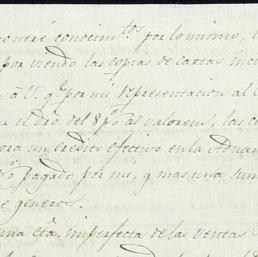 contré conocim^tos por lo mismo,
por viendo las copias de cartas inc
à U. q^e por mi representacion al
el dro. del 8 p% ad valorem, las c
ora un credito efectivo en la
pagado por mi, y mas una sum
e generos.
una cta. imperfecta de las ventas